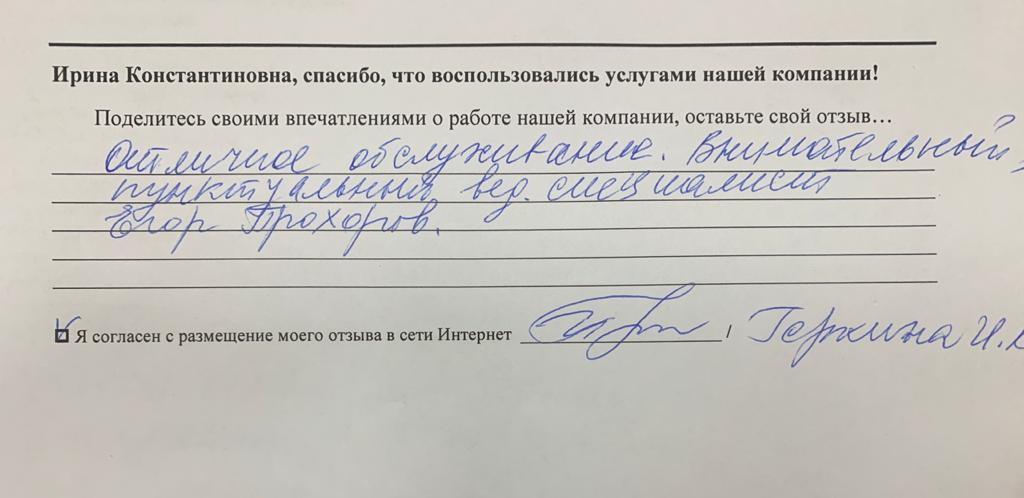 Ирина Константиновна, спасибо, что воспользовались услугами нашей компании!
Поделитесь своими впечатлениями о работе нашей компании, оставьте свой отзыв…
Отличное обслуживание. Внимательный,
пунктуальный вед. специалист
Егор Прохоров.
Я согласен с размещение моего отзыва в сети Интернет / Геркина И.К